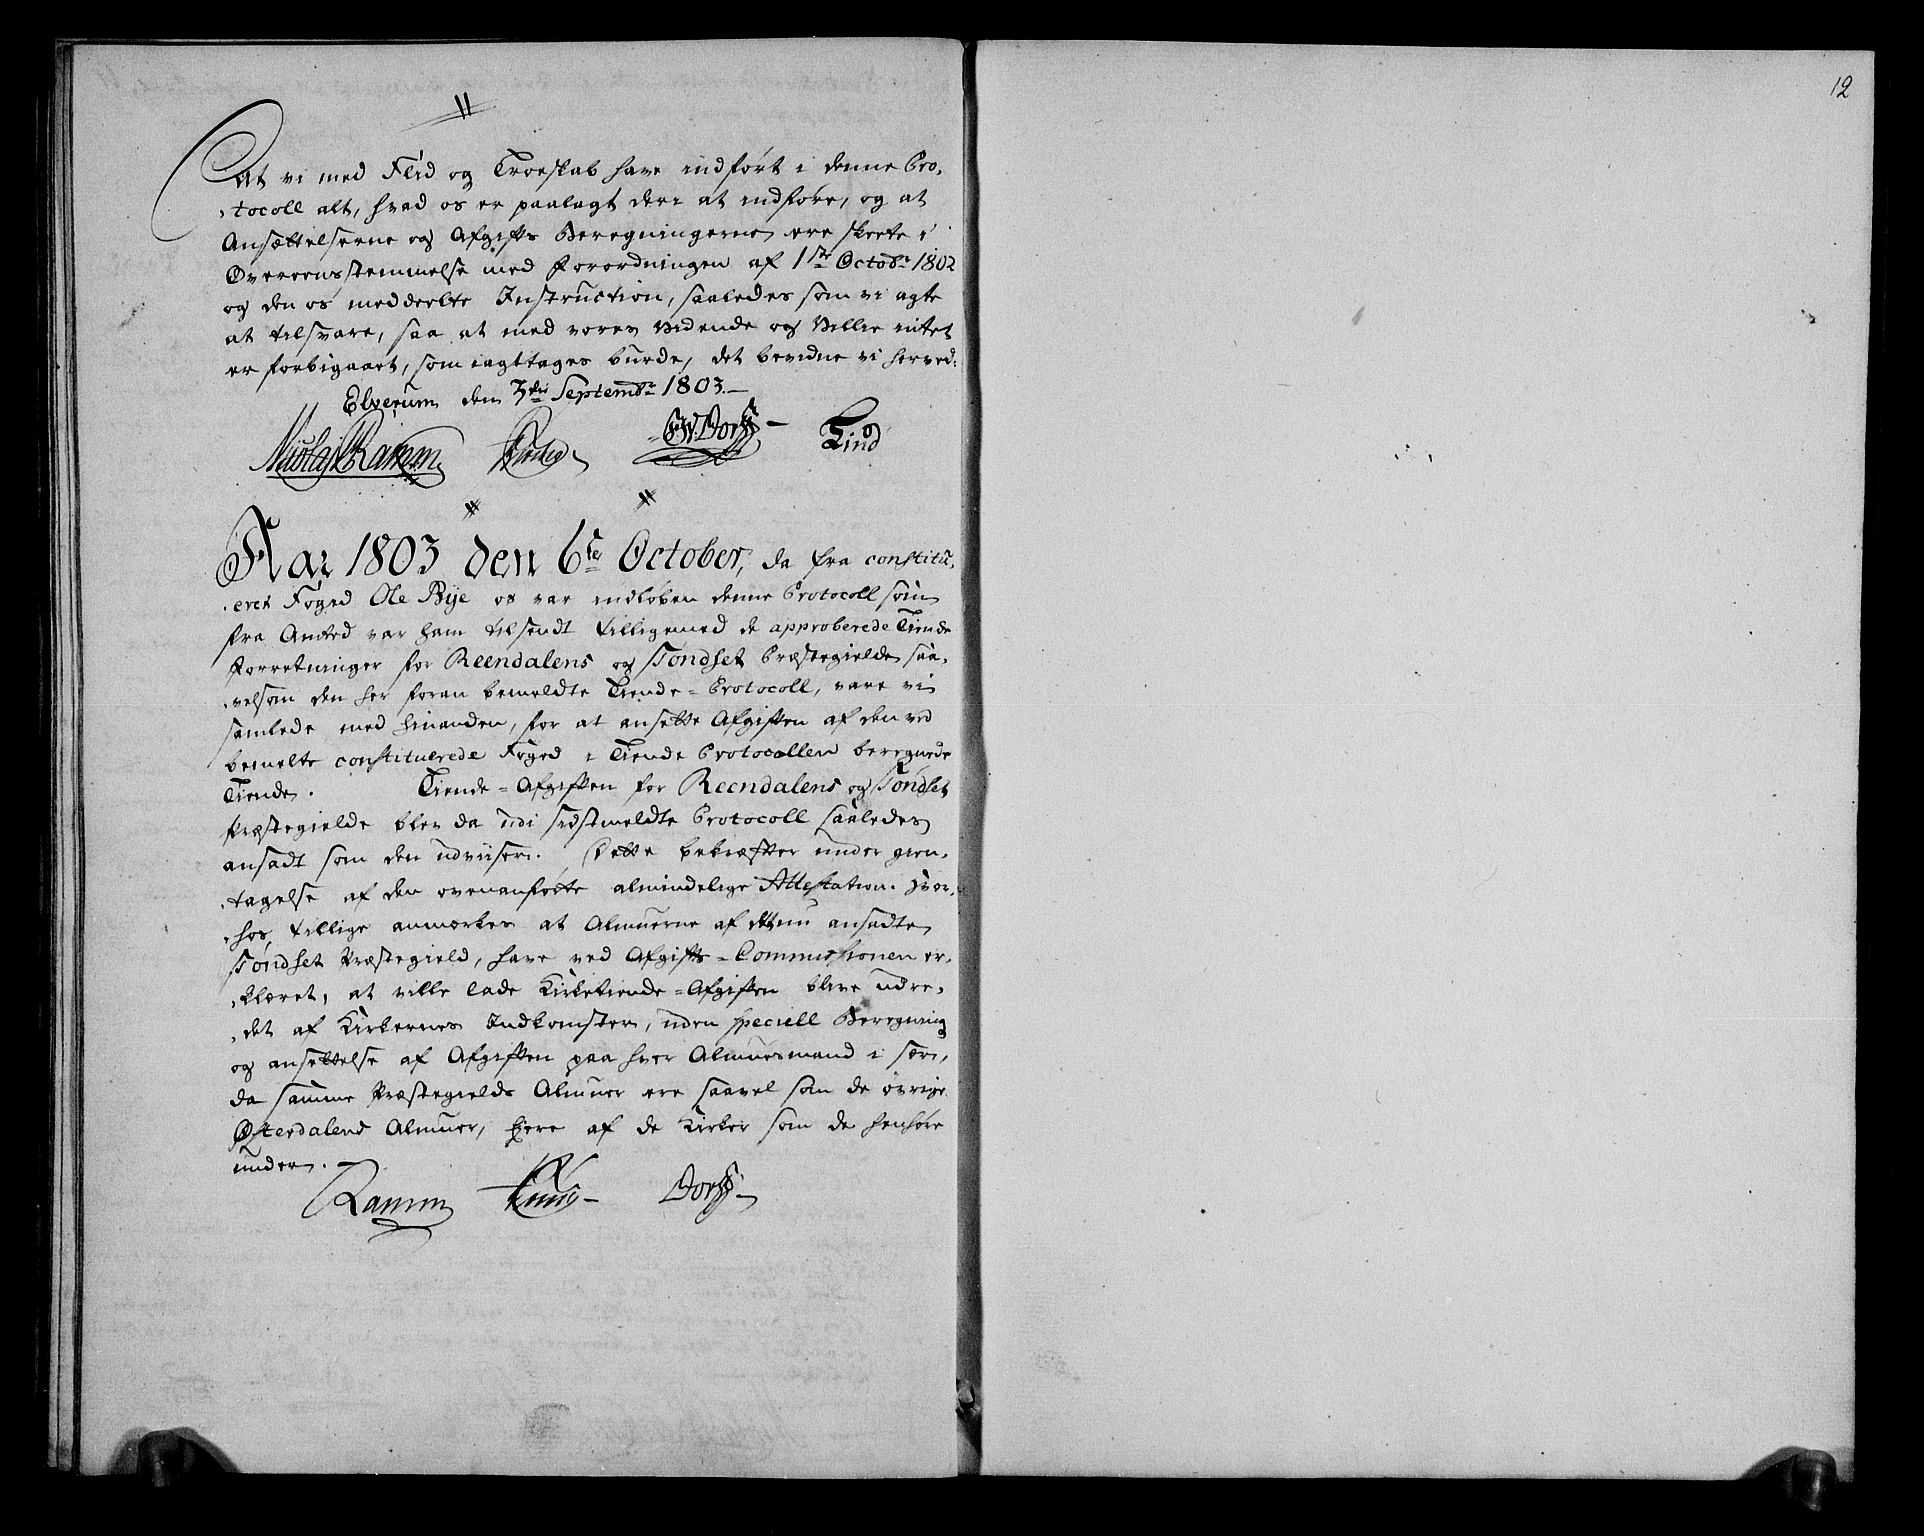 12
At vi med Flid og Troeskab have indført i denne Pro-
-tocoll alt, hvad os er paalagt deri at indføre, og at
Ansættelserne og Afgifts Beregningerne ere skeete i
Overeensstemmelse med Forordningen af 1ste Octobr 1802
og den os meddeelte Instruction, saaledes som vi agte
at tilsvare, saa at med vores Vidende og Villie intet
er forbigaaet, som iagttages burde, det bevidne vi herved.
Elverum den 3die Septembr 1803.
Nicolaj Ramm Dorph Lind
Aar 1803 den 6te October, da fra constitu-
-eret Foged Ole Bye os var indløben denne Protocoll som
fra Amtet var ham tilsendt tilligemed de approberede Tiende
Forretninger for Reendalens og Tøndset Præstegielde saa-
-velsom den her foran bemeldte Tiende-Protocoll, vare vi
samlede med hinanden, for at ansette Afgiften af den ved
bemelte constituerede Foged i Tiende Protocollen beregnede
Tiende. Tiende-Afgiften for Reendalens og Tøndset
Præstegielde blev da udi sidstmeldte Protocoll saaledes
ansadt som den udviiser. Dette bekræfter under gien-
-tagelse af den ovenanførte almindelige Attestation. Hvor-
-hos tillige anmærkes at Almuerne af det nu ansadte
Tøndset Præstegield, have ved Afgifts-Commissionen er-
-klæret, at ville lade Kirketiende-Afgiften blive udre-
-det af Kirkernes Indkomster, uden speciell Beregning
og ansettelse af Afgiften paa hver Almuesmand i sær,
da samme Præstegields Almuer ere saavel som de øvrige
Østerdalens Almuer, Eiere af de Kirker som de henhøre
under.
Ramm Dorph